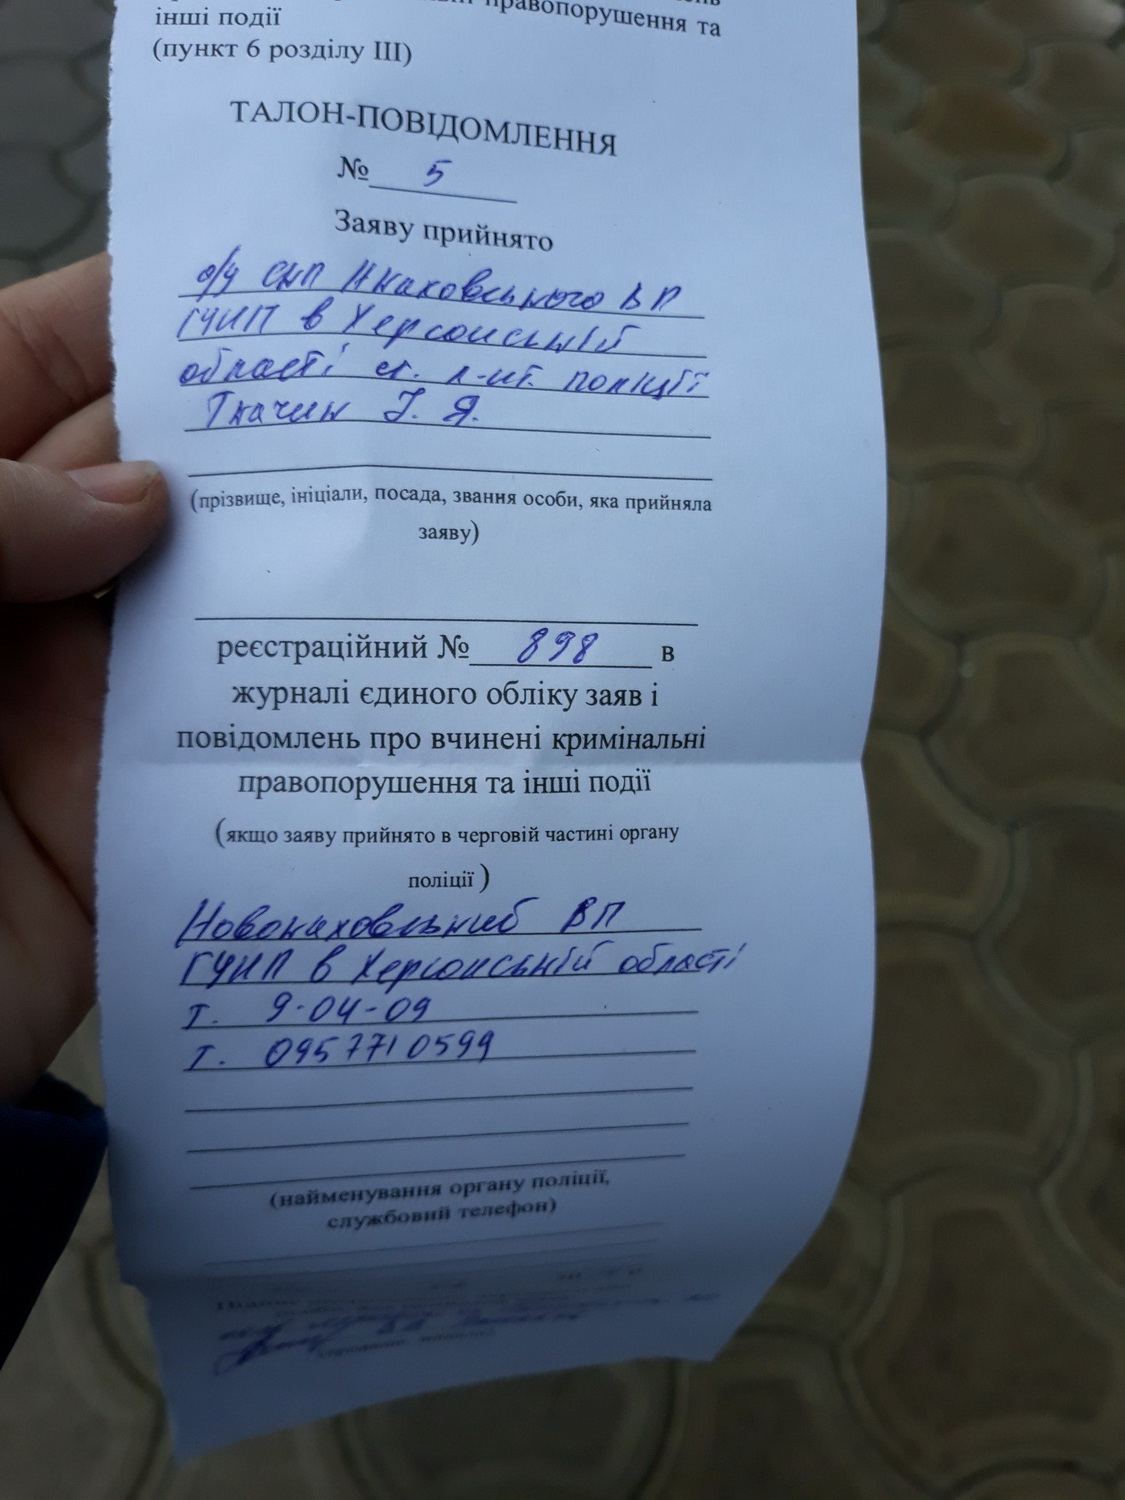 правопорушення та
інші події
(пункт 6 розділу III)
ТАЛОН-ПОВІДОМЛЕННЯ
№ 5
Заяву прийнято
о/у СКП Нкаховського ВП
ГУНП в Херсонській
області ст. л-нт. поліції
Ткачик І. Я.
(прізвище, ініціали, посада, звання особи, яка прийняла
заяву)
реєстраційний № 898 в
журналі єдиного обліку заяв і
повідомлень про вчинені кримінальні
правопорушення та інші події
(якщо заяву прийнято в черговій частині органу
поліції)
ВП
ГУНП в Херсонській області
т. 9-04-09
т. 0957710599
(найменування органу поліції,
службовий телефон)